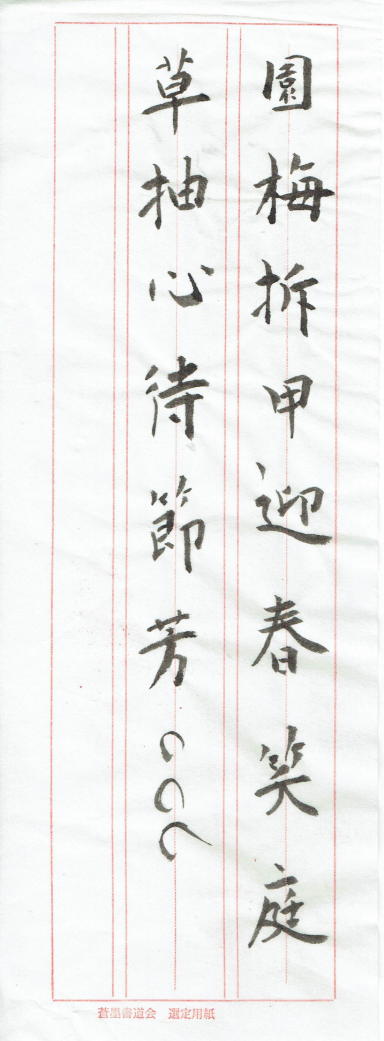 園梅拆甲迎春笑庭
草抽心待節芳
蒼墨書道会 選定用紙